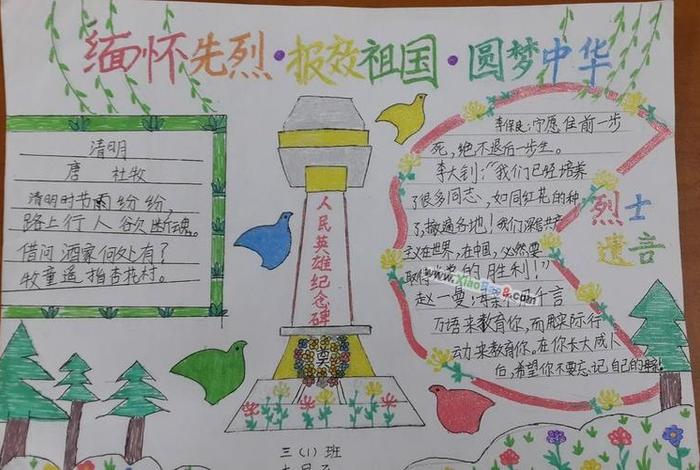 缅怀先烈·报效祖国·圆梦中华
清明
唐 杜牧
清明时节雨纷纷，
路上行人欲断魂。
借问酒家何处有？
牧童遥指杏花村。
人民英雄纪念碑
李保良：宁愿往前一步
死，绝不退后一步生。
李大钊：“我们已经培养
了很多同志，如同红花的种
了撒遍各地！我们深信共产
主义在世界，在中国，必然要
取得 的胜利！”
赵一曼： 千言
万语来教育你，而用实际行
动来教育你。在你长大成人
后，希望你不要忘记自己的
烈士
遗言
三（1）班